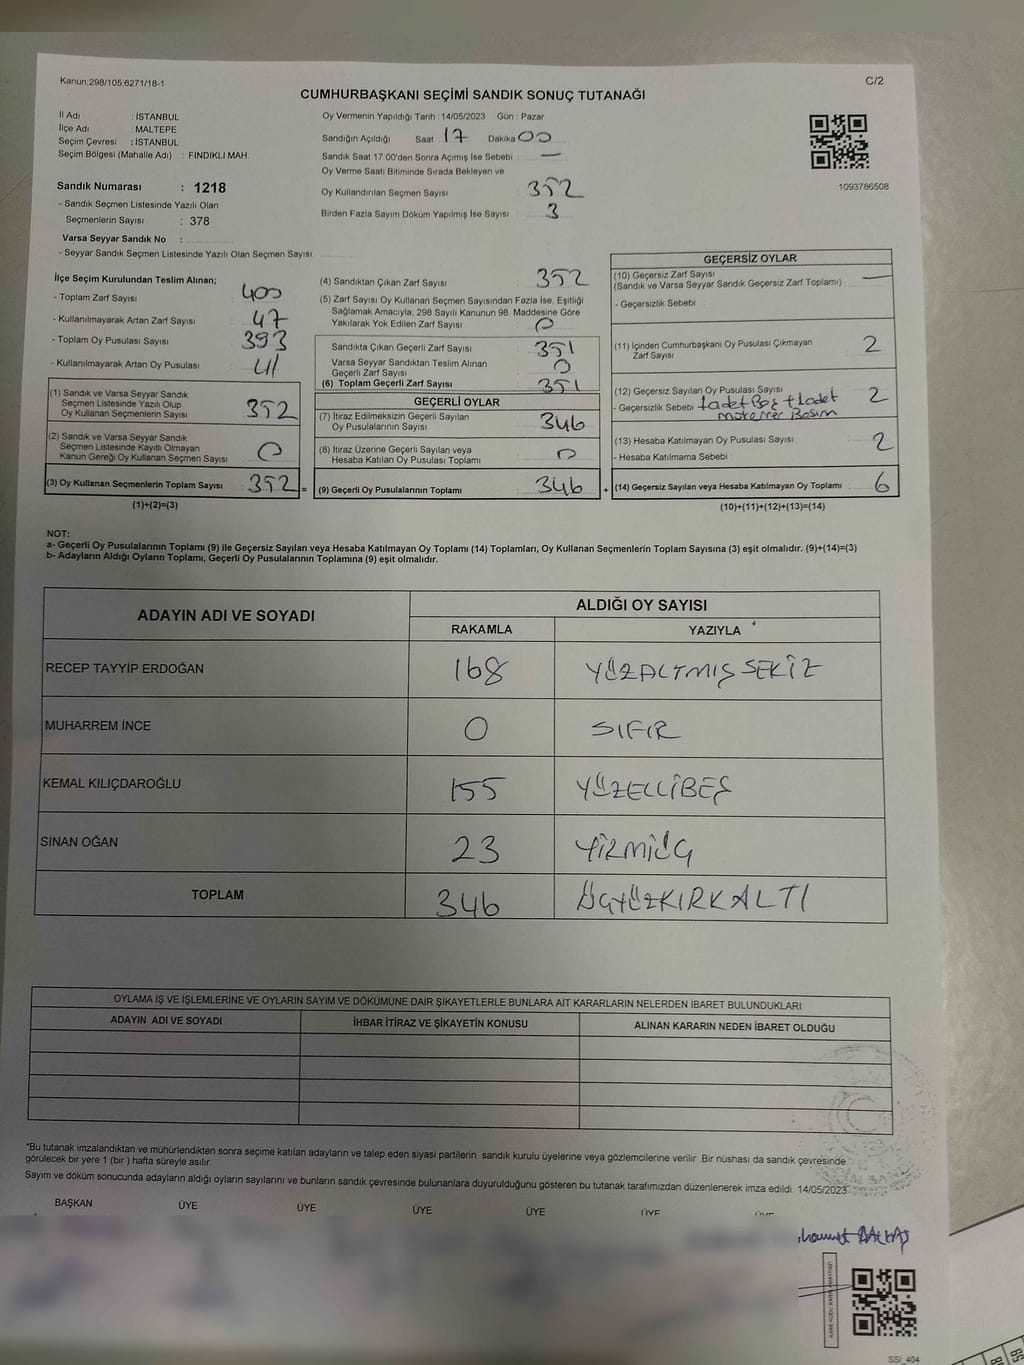 Kanun:298/105;6271/18-1
C/2
CUMHURBAŞKANI SEÇİMİ SANDIK SONUÇ TUTANAĞI
İl Adı : İSTANBUL
İlçe Adı : MALTEPE
Seçim Çevresi : İSTANBUL
Seçim Bölgesi (Mahalle Adı) : FINDIKLI MAH.
Sandık Numarası : 1218
- Sandık Seçmen Listesinde Yazılı Olan
Seçmenlerin Sayısı : 378
Varsa Seyyar Sandık No :
- Seyyar Sandık Seçmen Listesinde Yazılı Olan Seçmen Sayısı
Oy Vermenin Yapıldığı Tarih : 14/05/2023 Gün : Pazar
Sandığın Açıldığı Saat 17 Dakika 00
Sandık Saat 17:00'den Sonra Açımış İse Sebebi : —
Oy Verme Saati Bitiminde Sırada Bekleyen ve
Oy Kullandırılan Seçmen Sayısı : 352
Birden Fazla Sayım Döküm Yapılmış İse Sayısı : 3
1093786508
İlçe Seçim Kurulundan Teslim Alınan;
- Toplam Zarf Sayısı : 400
- Kullanılmayarak Artan Zarf Sayısı : 47
- Toplam Oy Pusulası Sayısı : 393
- Kullanılmayarak Artan Oy Pusulası : 41
(1) Sandık ve Varsa Seyyar Sandık
Seçmen Listesinde Yazılı Olup
Oy Kullanan Seçmenlerin Sayısı : 352
(2) Sandık ve Varsa Seyyar Sandık
Seçmen Listesinde Kayıtlı Olmayan
Kanun Gereği Oy Kullanan Seçmen Sayısı : 0
(3) Oy Kullanan Seçmenlerin Toplam Sayısı : 352 =
(1)+(2)=(3)
(4) Sandıktan Çıkan Zarf Sayısı : 352
(5) Zarf Sayısı Oy Kullanan Seçmen Sayısından Fazla İse, Eşitliği
Sağlamak Amacıyla, 298 Sayılı Kanunun 98. Maddesine Göre
Yakılarak Yok Edilen Zarf Sayısı : 0
Sandıkta Çıkan Geçerli Zarf Sayısı : 351
Varsa Seyyar Sandıktan Teslim Alınan
Geçerli Zarf Sayısı : 0
(6) Toplam Geçerli Zarf Sayısı : 351
GEÇERLİ OYLAR
(7) İtiraz Edilmeksizin Geçerli Sayılan
Oy Pusulalarının Sayısı : 346
(8) İtiraz Üzerine Geçerli Sayılan veya
Hesaba Katılan Oy Pusulası Toplamı : 0
(9) Geçerli Oy Pusulalarının Toplamı : 346 +
GEÇERSİZ OYLAR
(10) Geçersiz Zarf Sayısı : —
(Sandık ve Varsa Seyyar Sandık Geçersiz Zarf Toplamı)
- Geçersizlik Sebebi :
(11) İçinden Cumhurbaşkanı Oy Pusulası Çıkmayan
Zarf Sayısı : 2
(12) Geçersiz Sayılan Oy Pusulası Sayısı : 2
- Geçersizlik Sebebi 1 adet Boş + 1 adet
Basım
(13) Hesaba Katılmayan Oy Pusulası Sayısı : 2
- Hesaba Katılmama Sebebi :
(14) Geçersiz Sayılan veya Hesaba Katılmayan Oy Toplamı : 6
(10)+(11)+(12)+(13)=(14)
NOT:
a- Geçerli Oy Pusulalarının Toplamı (9) ile Geçersiz Sayılan veya Hesaba Katılmayan Oy Toplamı (14) Toplamları, Oy Kullanan Seçmenlerin Toplam Sayısına (3) eşit olmalıdır. (9)+(14)=(3)
b- Adayların Aldığı Oyların Toplamı, Geçerli Oy Pusulalarının Toplamına (9) eşit olmalıdır.
ADAYIN ADI VE SOYADI ALDIĞI OY SAYISI
RAKAMLA YAZIYLA
RECEP TAYYİP ERDOĞAN 168 YÜZALTMIŞ SEKİZ
MUHARREM İNCE 0 SIFIR
KEMAL KILIÇDAROĞLU 155 YÜZELLİBEŞ
SİNAN OĞAN 23 YİRMİÜÇ
TOPLAM 346 ÜÇYÜZKIRKALTI
OYLAMA İŞ VE İŞLEMLERİNE VE OYLARIN SAYIM VE DÖKÜMÜNE DAİR ŞİKAYETLERLE BUNLARA AİT KARARLARIN NELERDEN İBARET BULUNDUKLARI
ADAYIN ADI VE SOYADI İHBAR İTİRAZ VE ŞİKAYETİN KONUSU ALINAN KARARIN NEDEN İBARET OLDUĞU
*Bu tutanak imzalandıktan ve mühürlendikten sonra seçime katılan adayların ve talep eden siyasi partilerin sandık kurulu üyelerine veya gözlemcilerine verilir. Bir nüshası da sandık çevresinde
görülecek bir yere 1 (bir ) hafta süreyle asılır.
Sayım ve döküm sonucunda adayların aldığı oyların sayılarını ve bunların sandık çevresinde bulunanlara duyurulduğunu gösteren bu tutanak tarafımızdan düzenlenerek imza edildi. 14/05/2023
BAŞKAN ÜYE ÜYE ÜYE ÜYE ÜYE
SSI_404